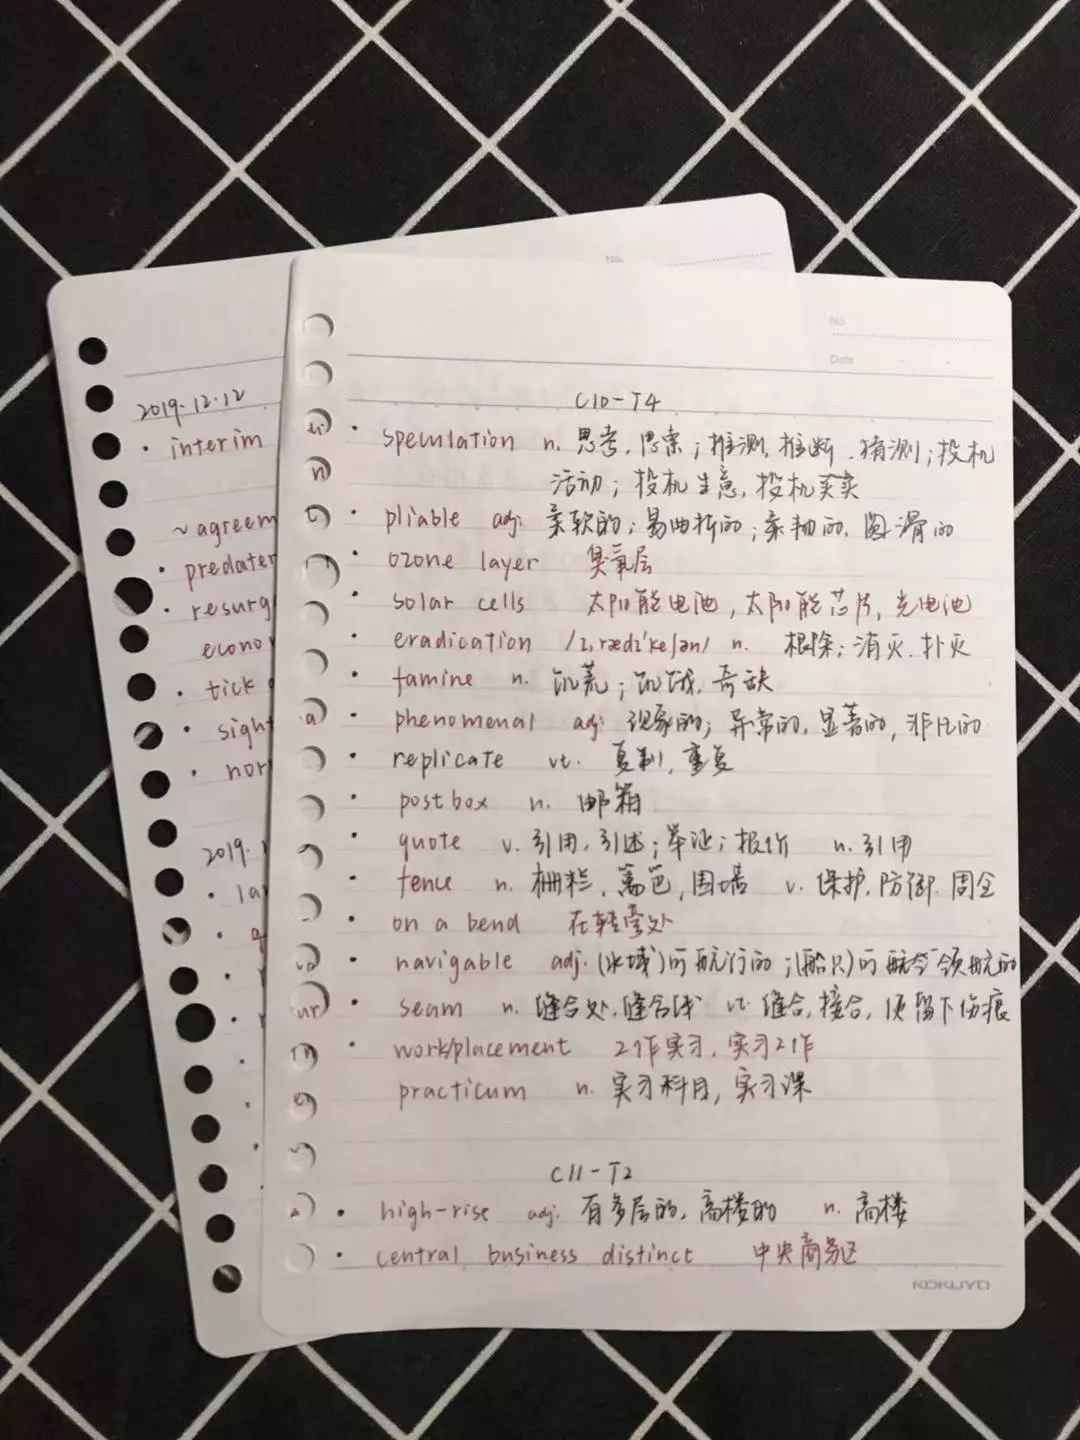 No.
2019.12.12
· interim
~agreem
· predater
· resurg
econo
· tick
· sigh
· nor
2019.1
· la
No.
Date
C10-T4
· speculation n. 思考,思索;推测,推断.猜测;投机
活动;投机生意,投机买卖
· pliable adj. 柔软的;易曲折的;柔韧的,圆滑的
· ozone layer 臭氧层
· solar cells 太阳能电池,太阳能芯片,光电池
· eradication /ɪ,rædɪ'keʃən/ n. 根除;消灭.扑灭
· famine n. 饥荒;饥饿,奇缺
· phenomenal adj. 现象的;异常的,显著的,非凡的
· replicate vt. 复制,重复
· postbox n. 邮箱
· quote v. 引用,引述;举证;报价 n. 引用
· fence n. 栅栏,篱笆,围墙 v. 保护,防御.周全
· on a bend 在转弯处
· navigable adj. (水域)可航行的;(船只)可航行领航的
· seam n. 缝合处,缝合线 vt. 缝合,接合,使留下伤痕
· work/placement 工作实习,实习工作
· practicum n. 实习科目,实习课
C11-T2
· high-rise adj. 有多层的,高楼的 n. 高楼
· central business distinct 中央商务区
KOKUYO